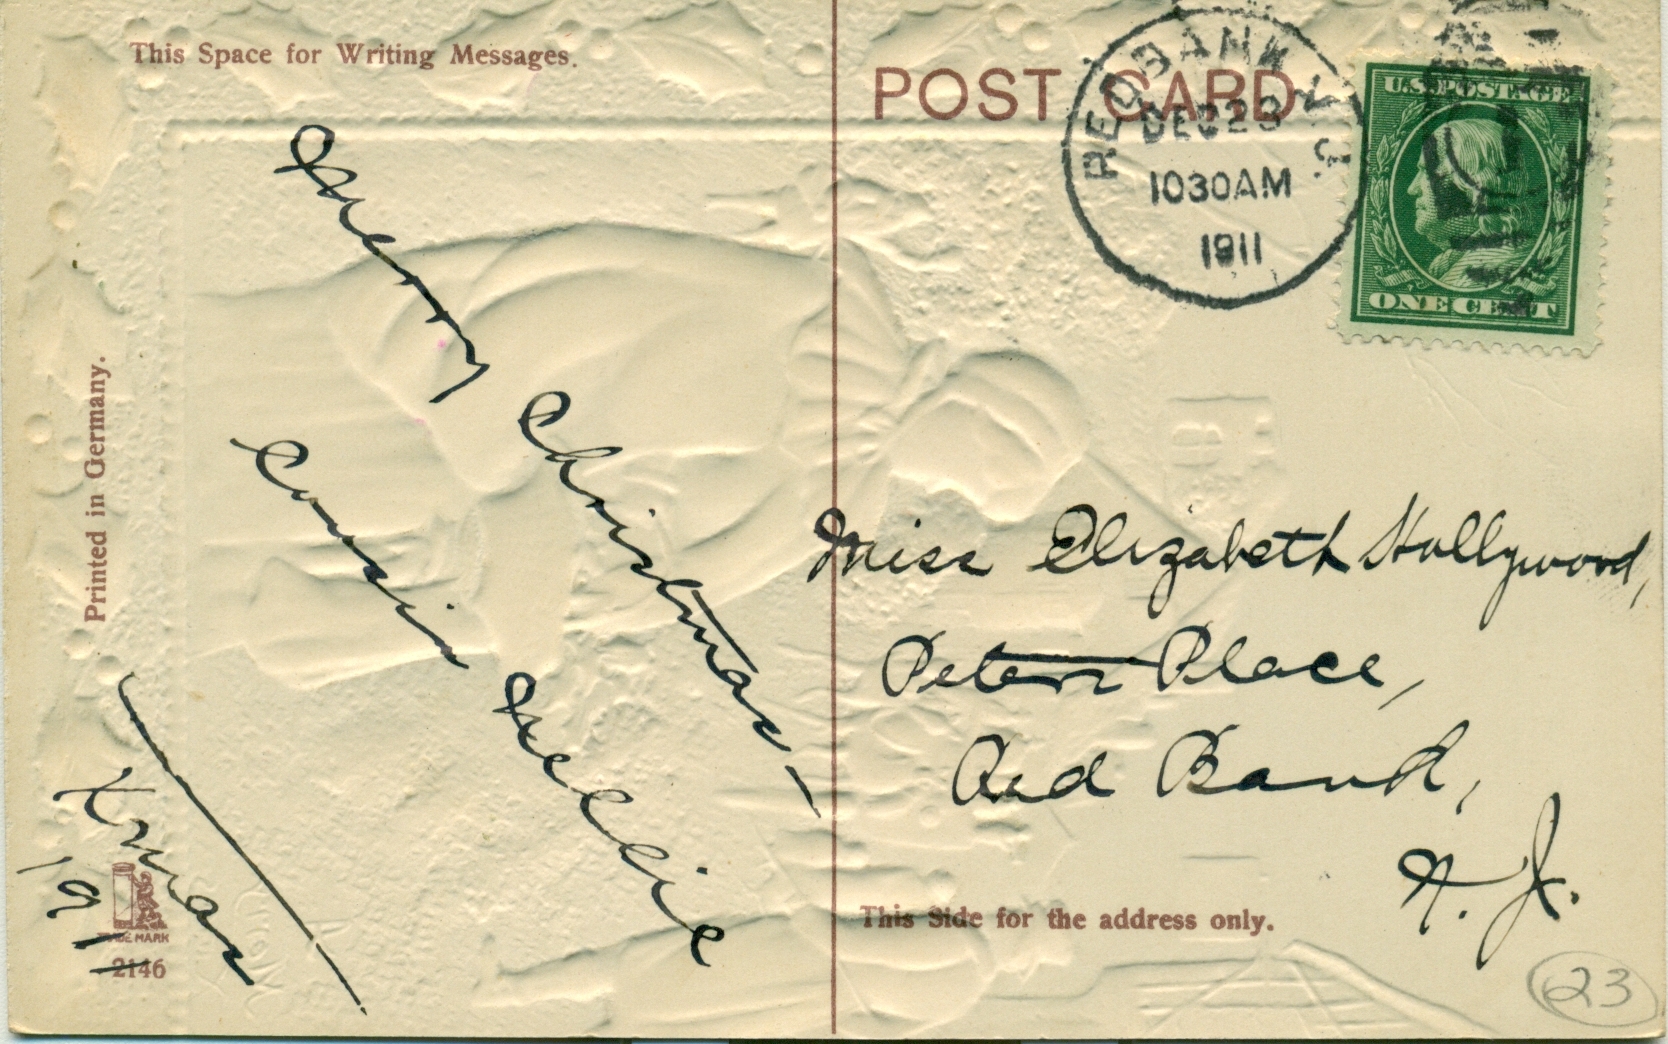 This Space for Writing Messages.
POST CARD
RED BANK N.J.
DEC 23
10 30 AM
1911
U.S. POSTAGE
ONE CENT
Merry Christmas –
Cousin Nellie
Xmas
1911
Printed in Germany.
TRADE MARK
2146
Miss Elizabeth Hollywood,
Peters Place,
Red Bank,
N. J.
This Side for the address only.
23